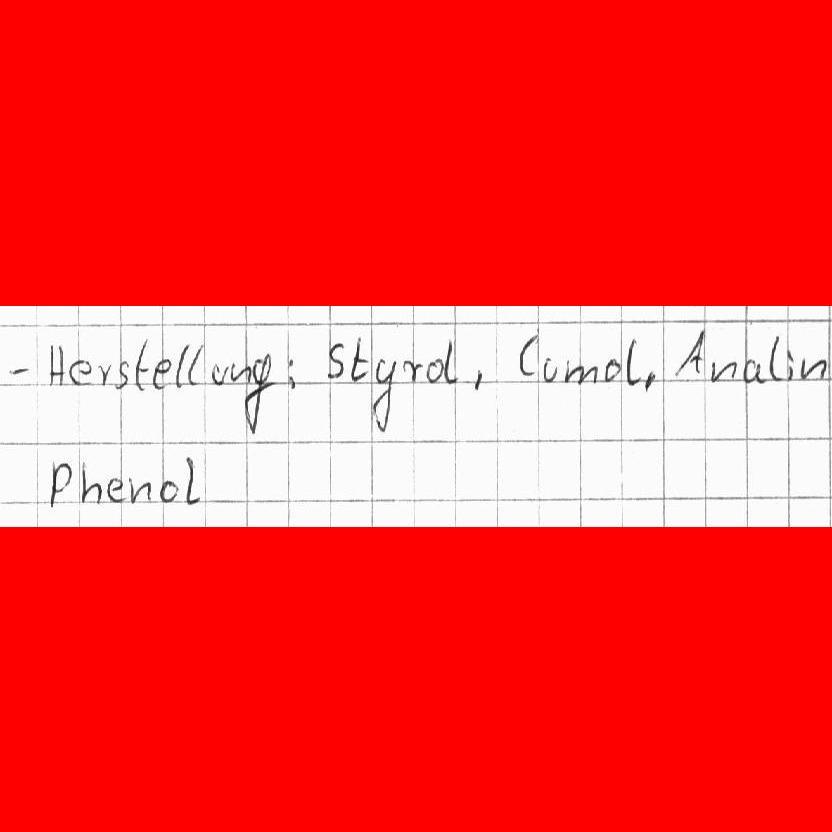 - Herstellung: Styrol, Cumol, Analin
Phenol